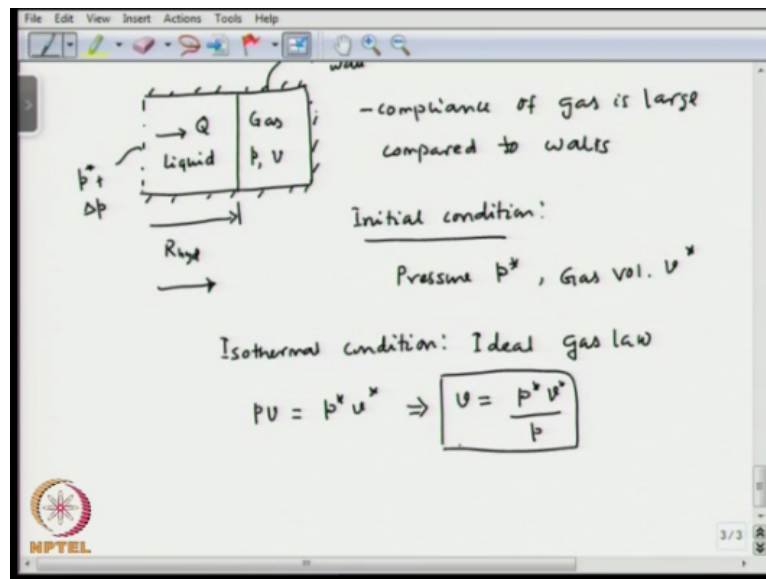 File Edit View Insert Actions Tools Help
wall
→ Q
liquid
Gas
p, V
p* +
Δp
Rhyd
- compliance of gas is large
compared to walls
Initial condition:
Pressure p*, Gas vol. v*
Isothermal condition: Ideal gas law
PV = p* v* ⇒ v = p* v* / p
NPTEL
3/3